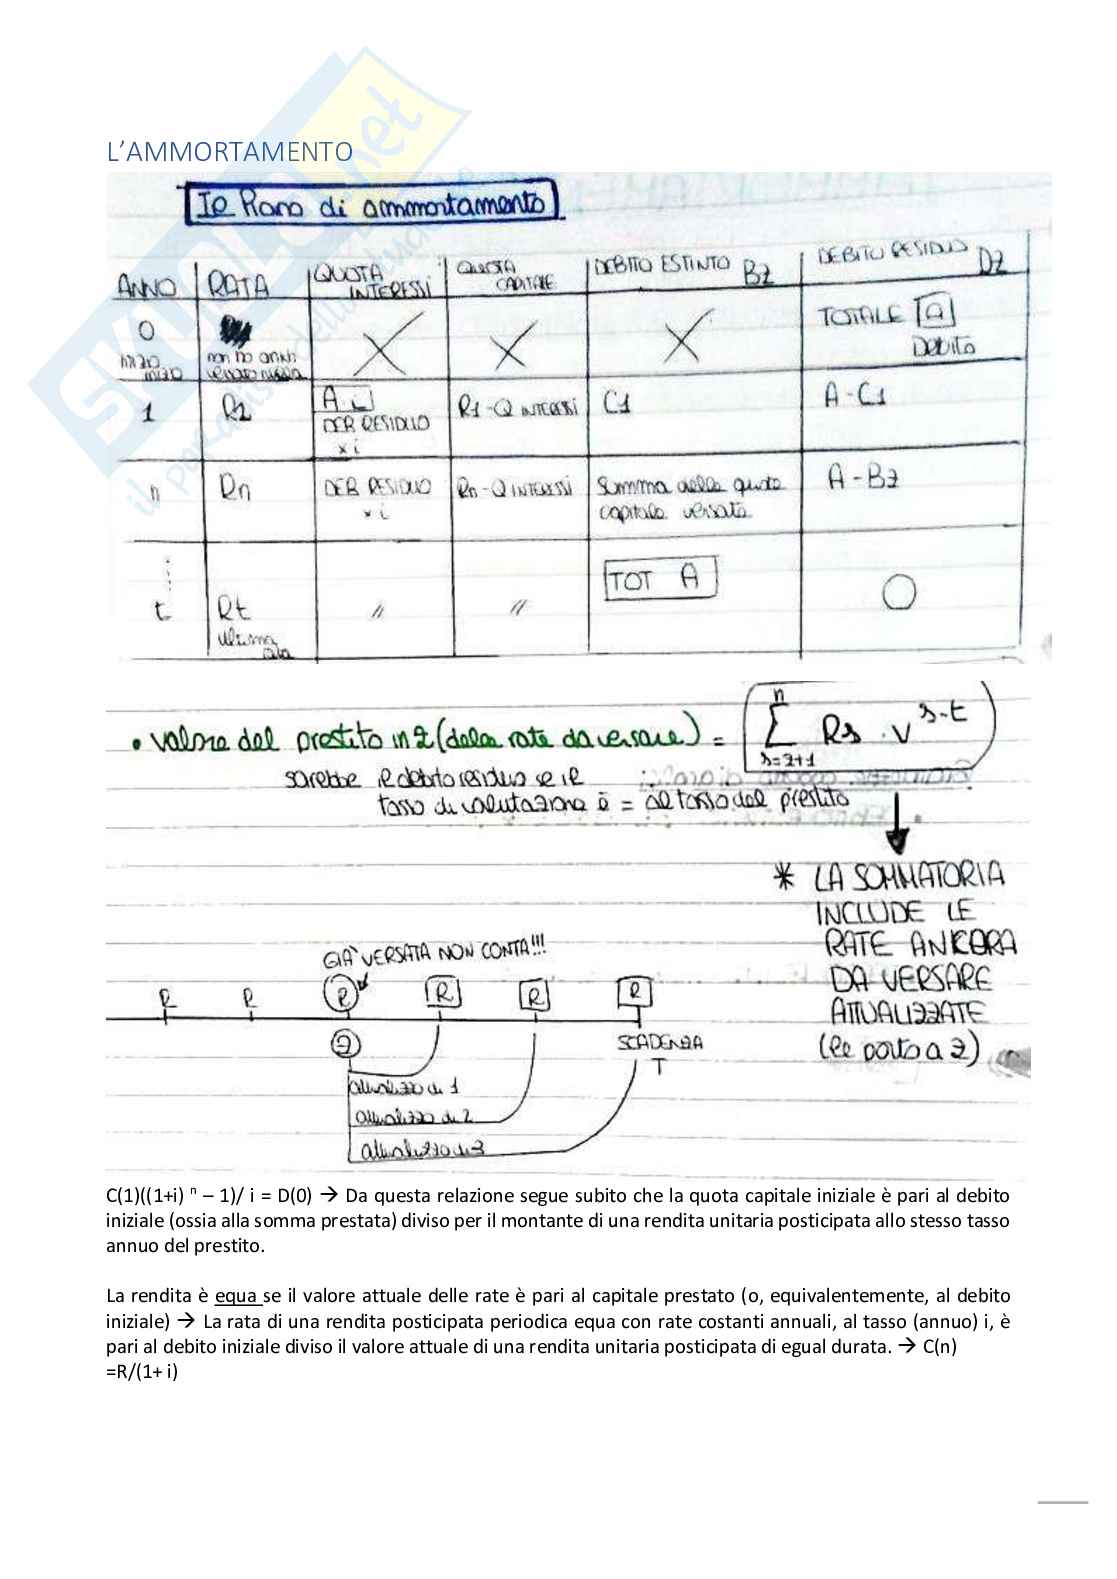 L’AMMORTAMENTO
Il Piano di ammortamento
ANNO RATA QUOTA INTERESSI QUOTA CAPITALE DEBITO ESTINTO Bz DEBITO RESIDUO Dz
0 inizio inizio non ho anch versato nulla TOTALE A DEBITO
1 R1 A · i DEB RESIDUO x i R1 - Q INTERESSI C1 A - C1
n Rn DEB RESIDUO x i Rn - Q INTERESSI Somma delle quote capitale versate A - Bz
t Rt ultima rata // // TOT A 0
• Valore del prestito in z (delle rate da versare) = n ∑ s=z+1 Rs · v^s-t
sarebbe il debito residuo se il
tasso di valutazione è = al tasso del prestito
* LA SOMMATORIA
INCLUDE LE
RATE ANCORA
DA VERSARE
ATTUALIZZATE
(le porto a z)
GIA' VERSATA NON CONTA!!!
R R R R R R
z SCADENZA
T
attualizzo di 1
attualizzo di 2
attualizzo di 3
C(1)((1+i) ⁿ – 1)/ i = D(0) → Da questa relazione segue subito che la quota capitale iniziale è pari al debito
iniziale (ossia alla somma prestata) diviso per il montante di una rendita unitaria posticipata allo stesso tasso
annuo del prestito.
La rendita è equa se il valore attuale delle rate è pari al capitale prestato (o, equivalentemente, al debito
iniziale) → La rata di una rendita posticipata periodica equa con rate costanti annuali, al tasso (annuo) i, è
pari al debito iniziale diviso il valore attuale di una rendita unitaria posticipata di egual durata. → C(n)
=R/(1+ i)